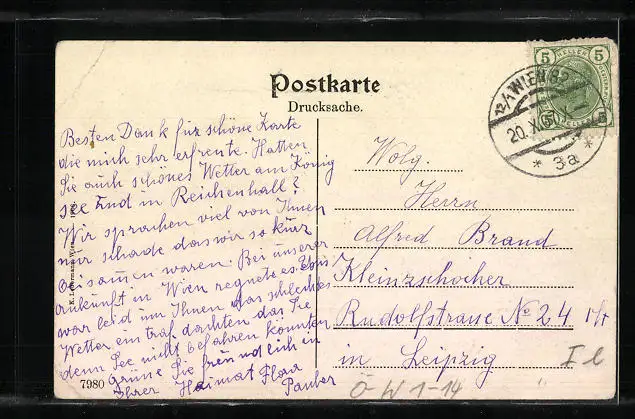 Postkarte
Drucksache.
5 HELLER 5
12/1 WIEN 82
20. X
* 3a *
Besten Dank für schöne Karte
die mich sehr erfreute. Hatten
Sie auch schönes Wetter am König
see Und in Reichenhall?
Wir sprachen viel von Ihnen
nur schade das wir so kurz
samen waren. Bei unserer
ankunft in Wien regnete es. Es
war leid um Ihnen das schlechte
Wetter ein traf, dachten das Sie
denn See nicht befahren konnten
Grüne Sie freundlich in
Ihrer Haimat
Wolg.
Herrn
Alfred Brand
Kleinzschocher
Rudolfstrasse No 24
in Leipzig
7980
Ö-W 1-14